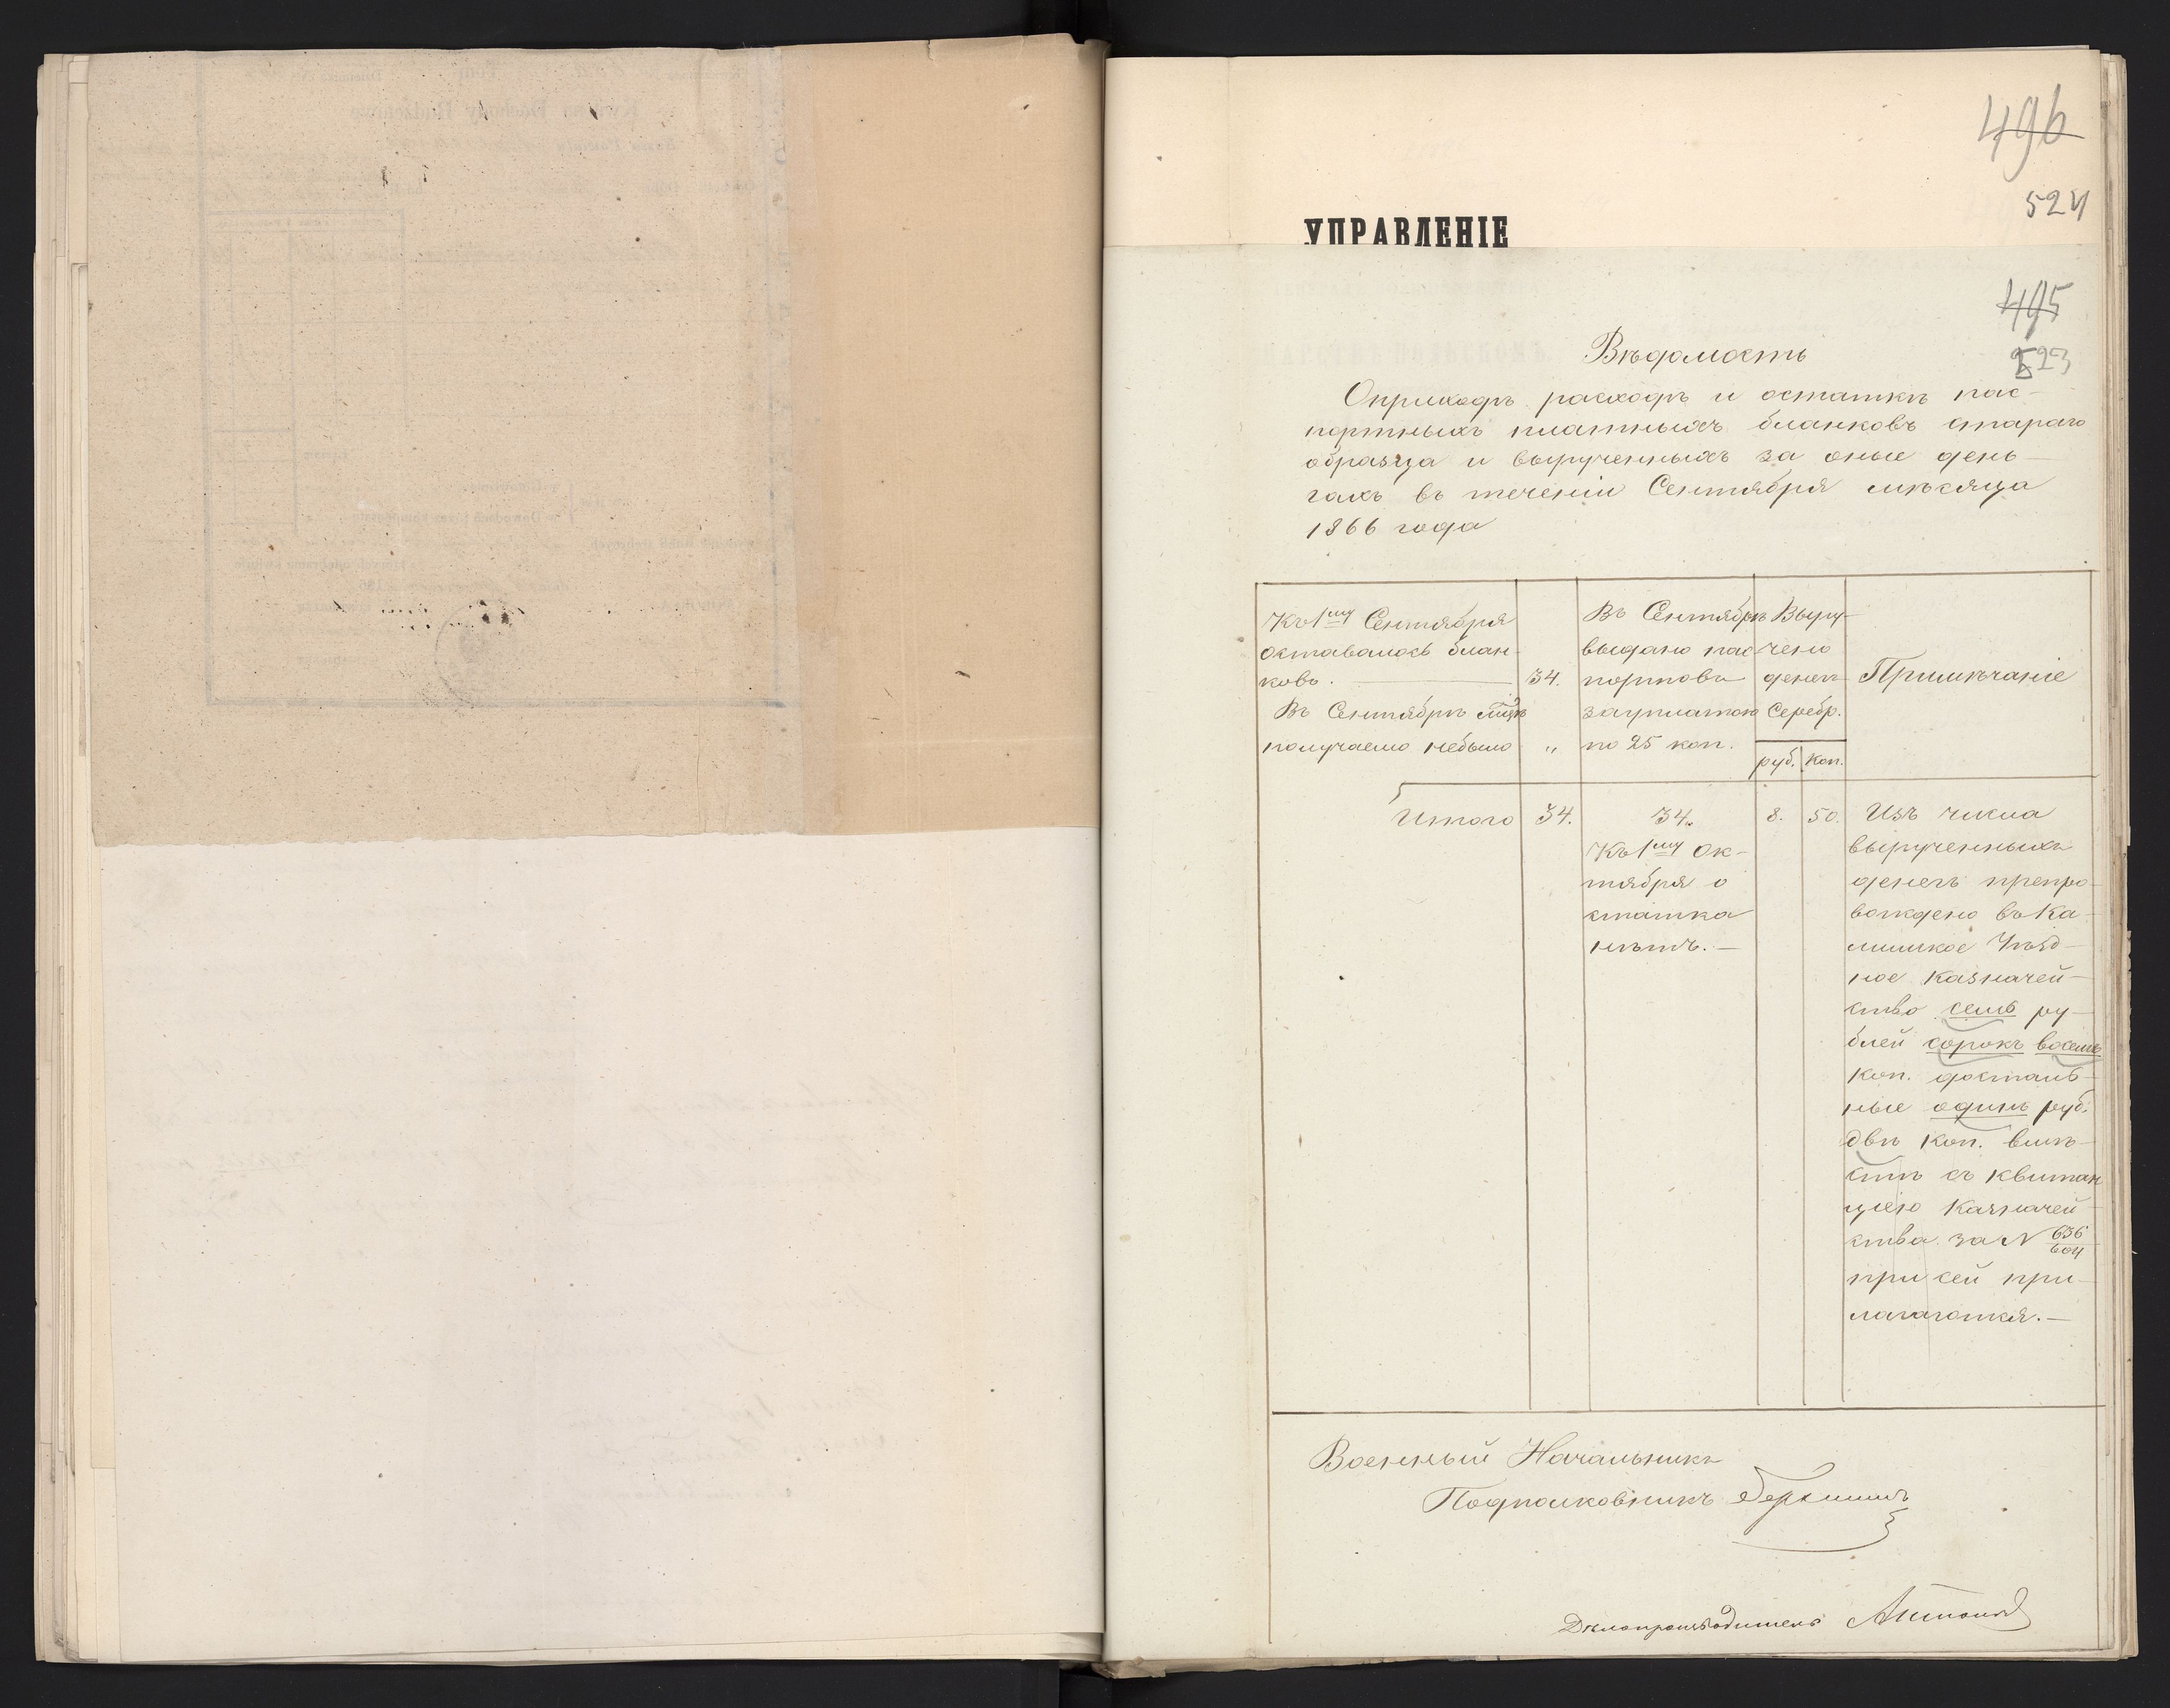 496
524
УПРАВЛЕНІЕ
495
523
Вѣдомость
Оприходѣ расходѣ и остаткѣ пас-
портныхъ платныхъ бланковъ стараго
образца и вырученныхъ за оные день-
гахъ въ теченіи Сентября мѣсяца
1866 года
Къ 1му Сентября
оставалось блан-
ковъ. — 34.
Въ Сентябрѣ мцѣ
получаемо небыло "
Въ Сентябрѣ
выдано пас-
портовъ
зауплатою
по 25 коп.
Выру-
чено
денегъ
Серебр.
руб. Коп.
Примѣчаніе
Итого 34. 34. 8. 50.
Къ 1му Ок-
тября о
статка
нѣтъ. —
Изъ числа
вырученныхъ
денегъ препро-
вождено въ Ка-
лишское Уѣзд-
ное Казначей-
ство семь ру-
блей сорокъ восемь
коп. достальные-
ные одинъ руб.
двѣ коп. вмѣ-
стѣ съ квитан
цiею Казначей-
ства за N 636/604
при сей при-
лагаются. —
Военный Начальникъ
Подполковникъ
Дѣлопроизводитель